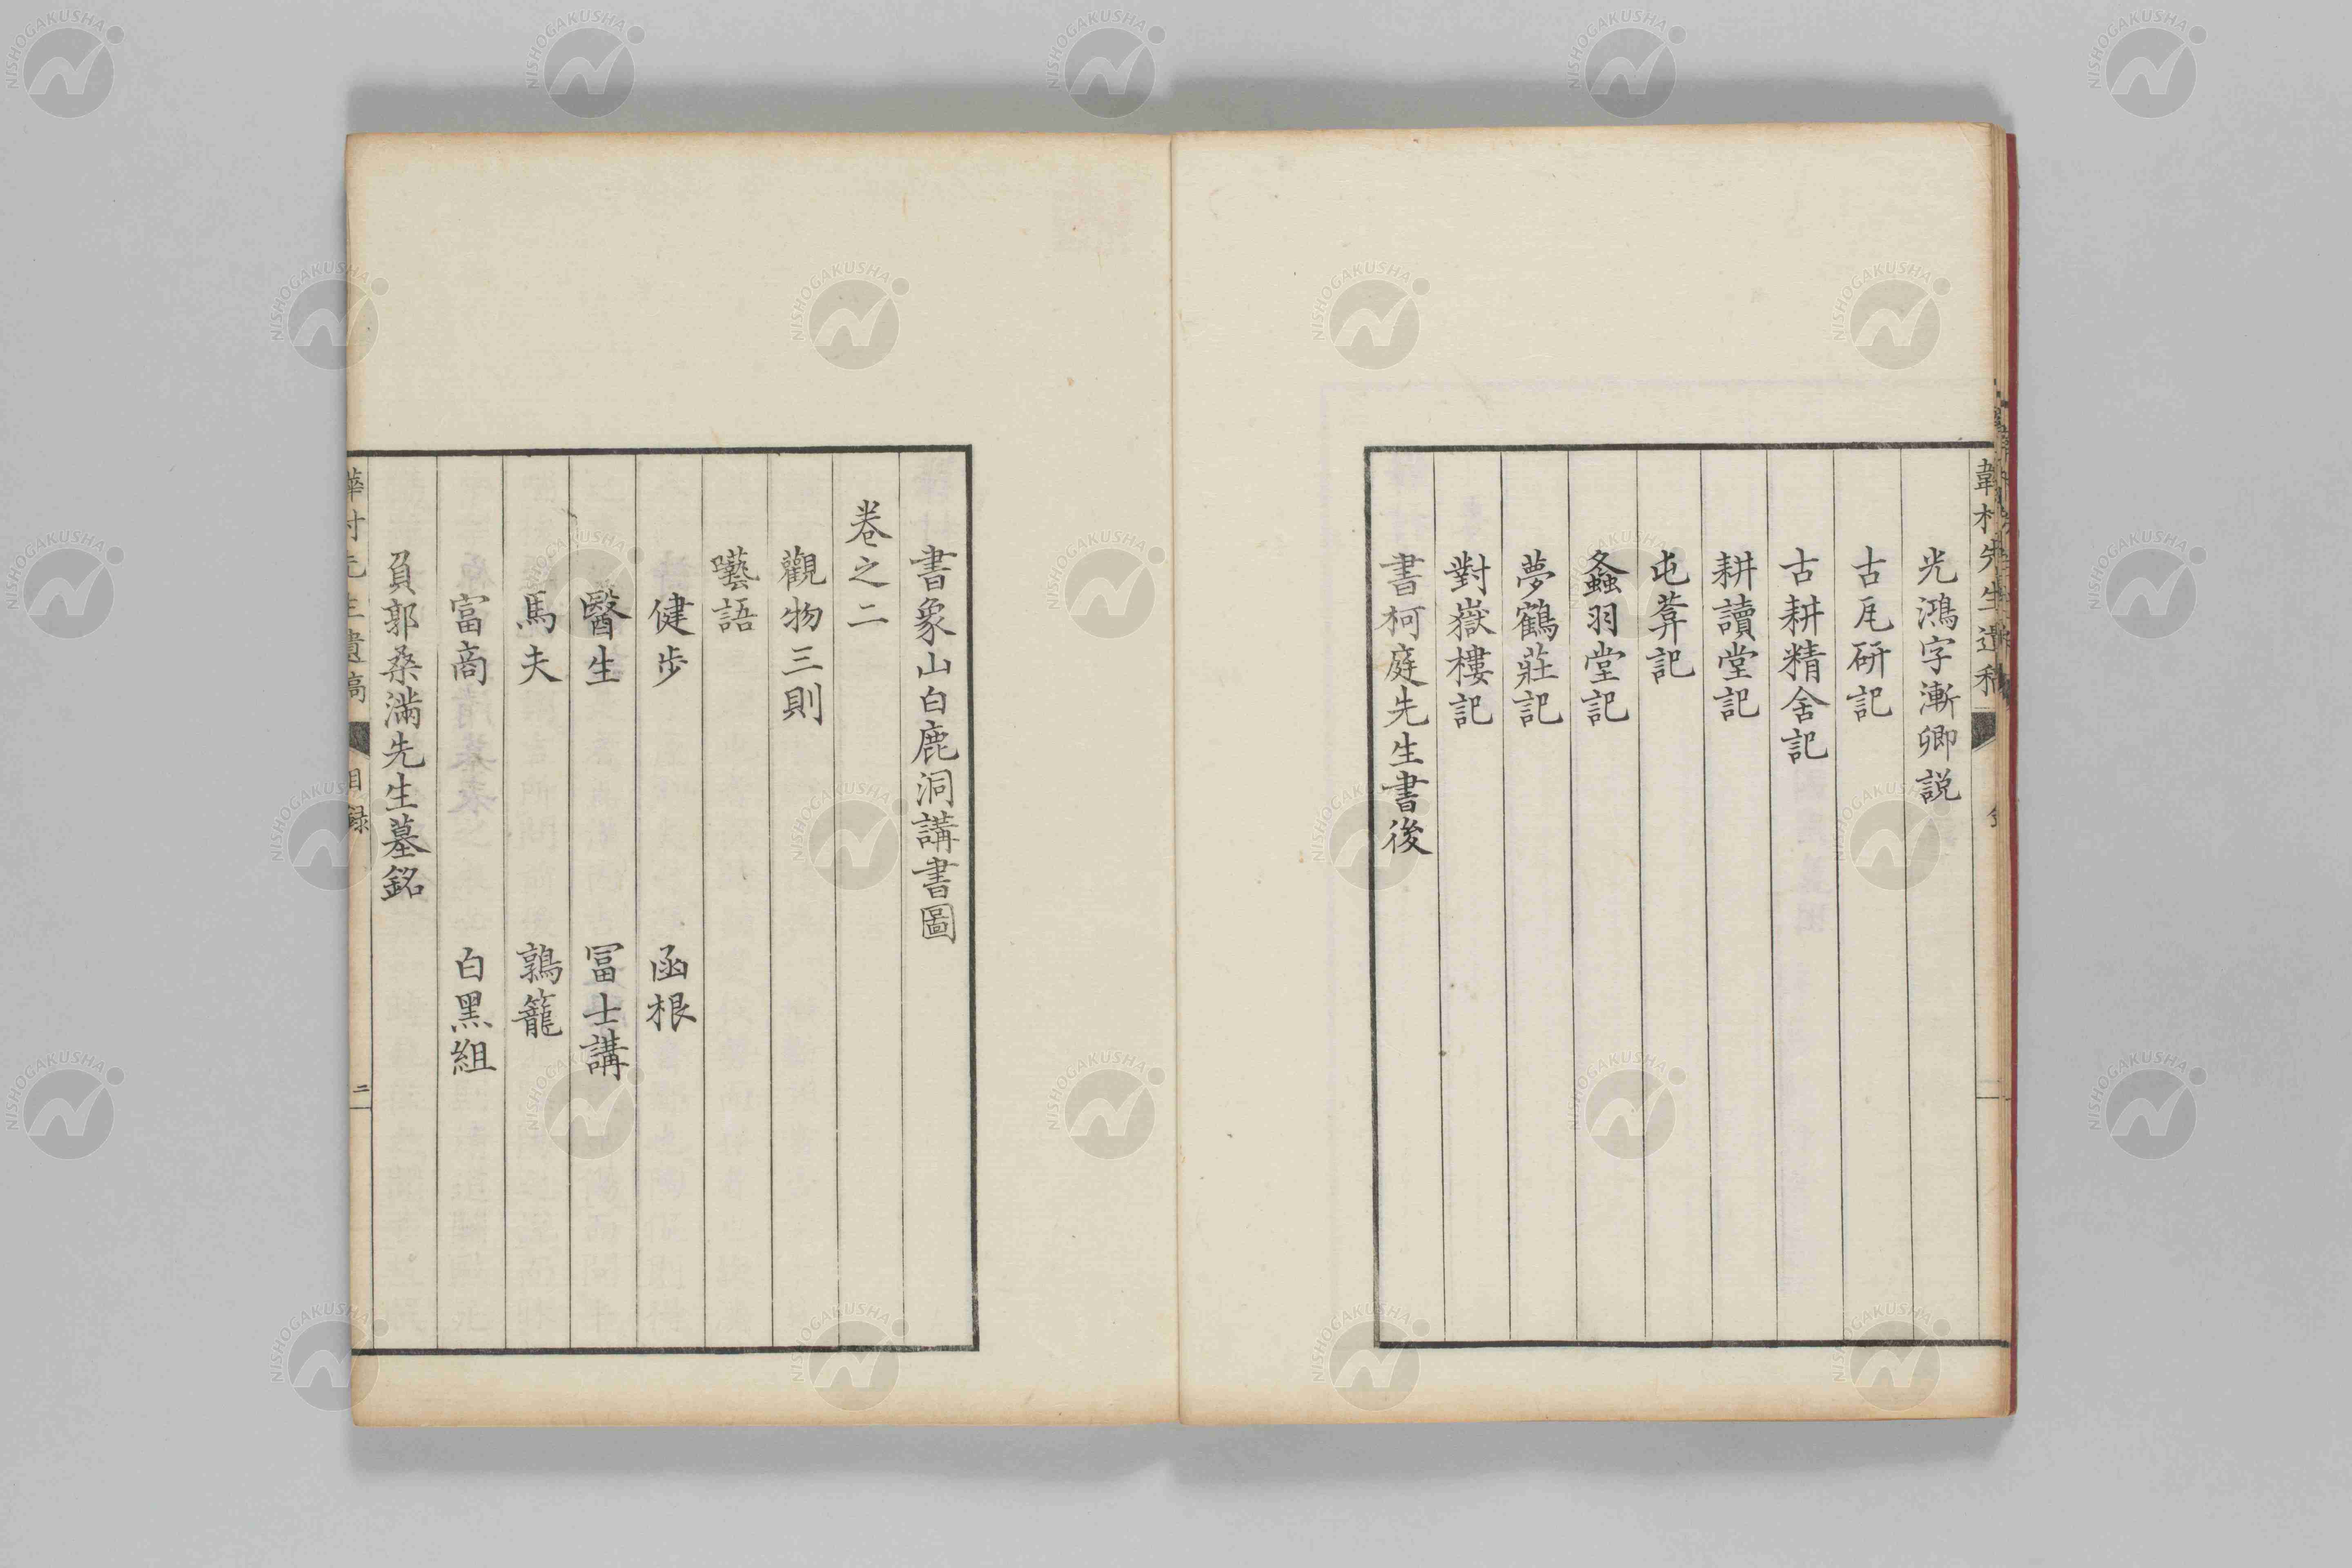 韋村先生遺稿
光鴻字漸卿説
古瓦研記
古耕精舍記
耕讀堂記
屯葊記
螽羽堂記
夢鶴莊記
對嶽樓記
書柯庭先生書後
書象山白鹿洞講書圖
卷之二
觀物三則
囈語
健步 函根
醫生 冨士講
馬夫 鶉籠
富商 白黑組
負郭桑滿先生墓銘
韡村先生遺稿 目録 二
NISHOGAKUSHA